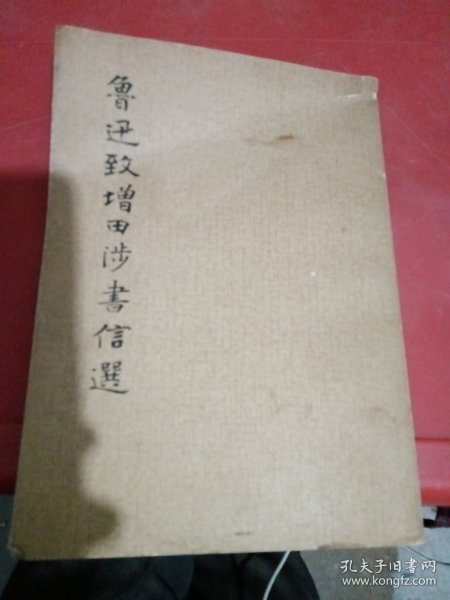 魯迅致增田涉書信選
孔夫子旧书网
www.kongfz.com